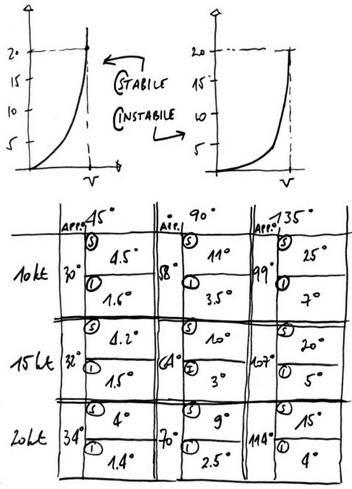 20
15
10
5
V
STABILE
INSTABILE
20
15
10
5
V
45° 90° 135°
APP. APP. APP.
10 kt 30° S 4.5° 58° S 11° 99° S 25°
I 1.6° I 3.5° I 7°
15 kt 32° S 4.2° 64° S 10° 107° S 20°
I 1.5° I 3° I 5°
20 kt 34° S 4° 70° S 9° 114° S 15°
I 1.4° I 2.5° I 4°